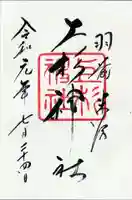 羽前米沢
上杉神社
令和元年七月二十四日